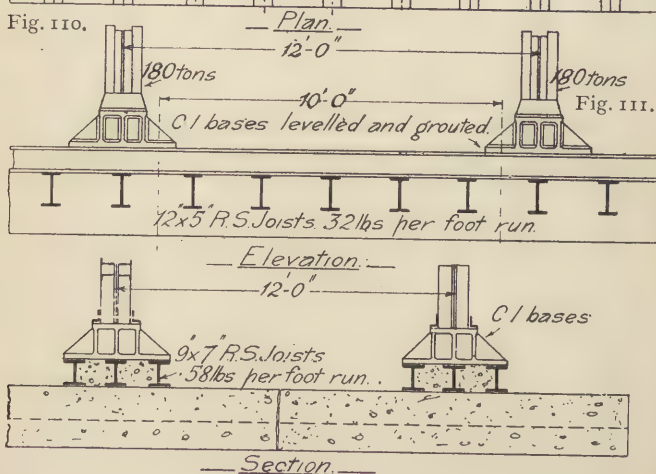 Fig. 110.
Plan.
12'-0"
180 tons
180 tons
10'-0"
Fig. 111.
C I bases levelled and grouted.
12"x5" R.S. Joists 32 lbs per foot run.
Elevation.
12'-0"
C I bases
9"x7" R.S. Joists
58 lbs per foot run.
Section.